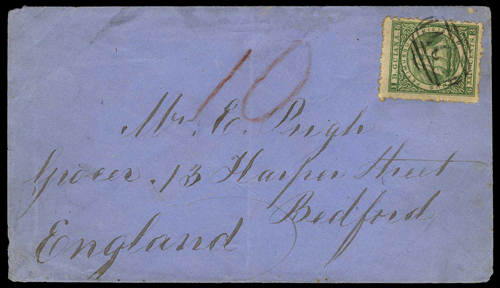 10
Mr. E. Pugh
Grocer. 13 Harper Street
Bedford
England
B. GUIANA